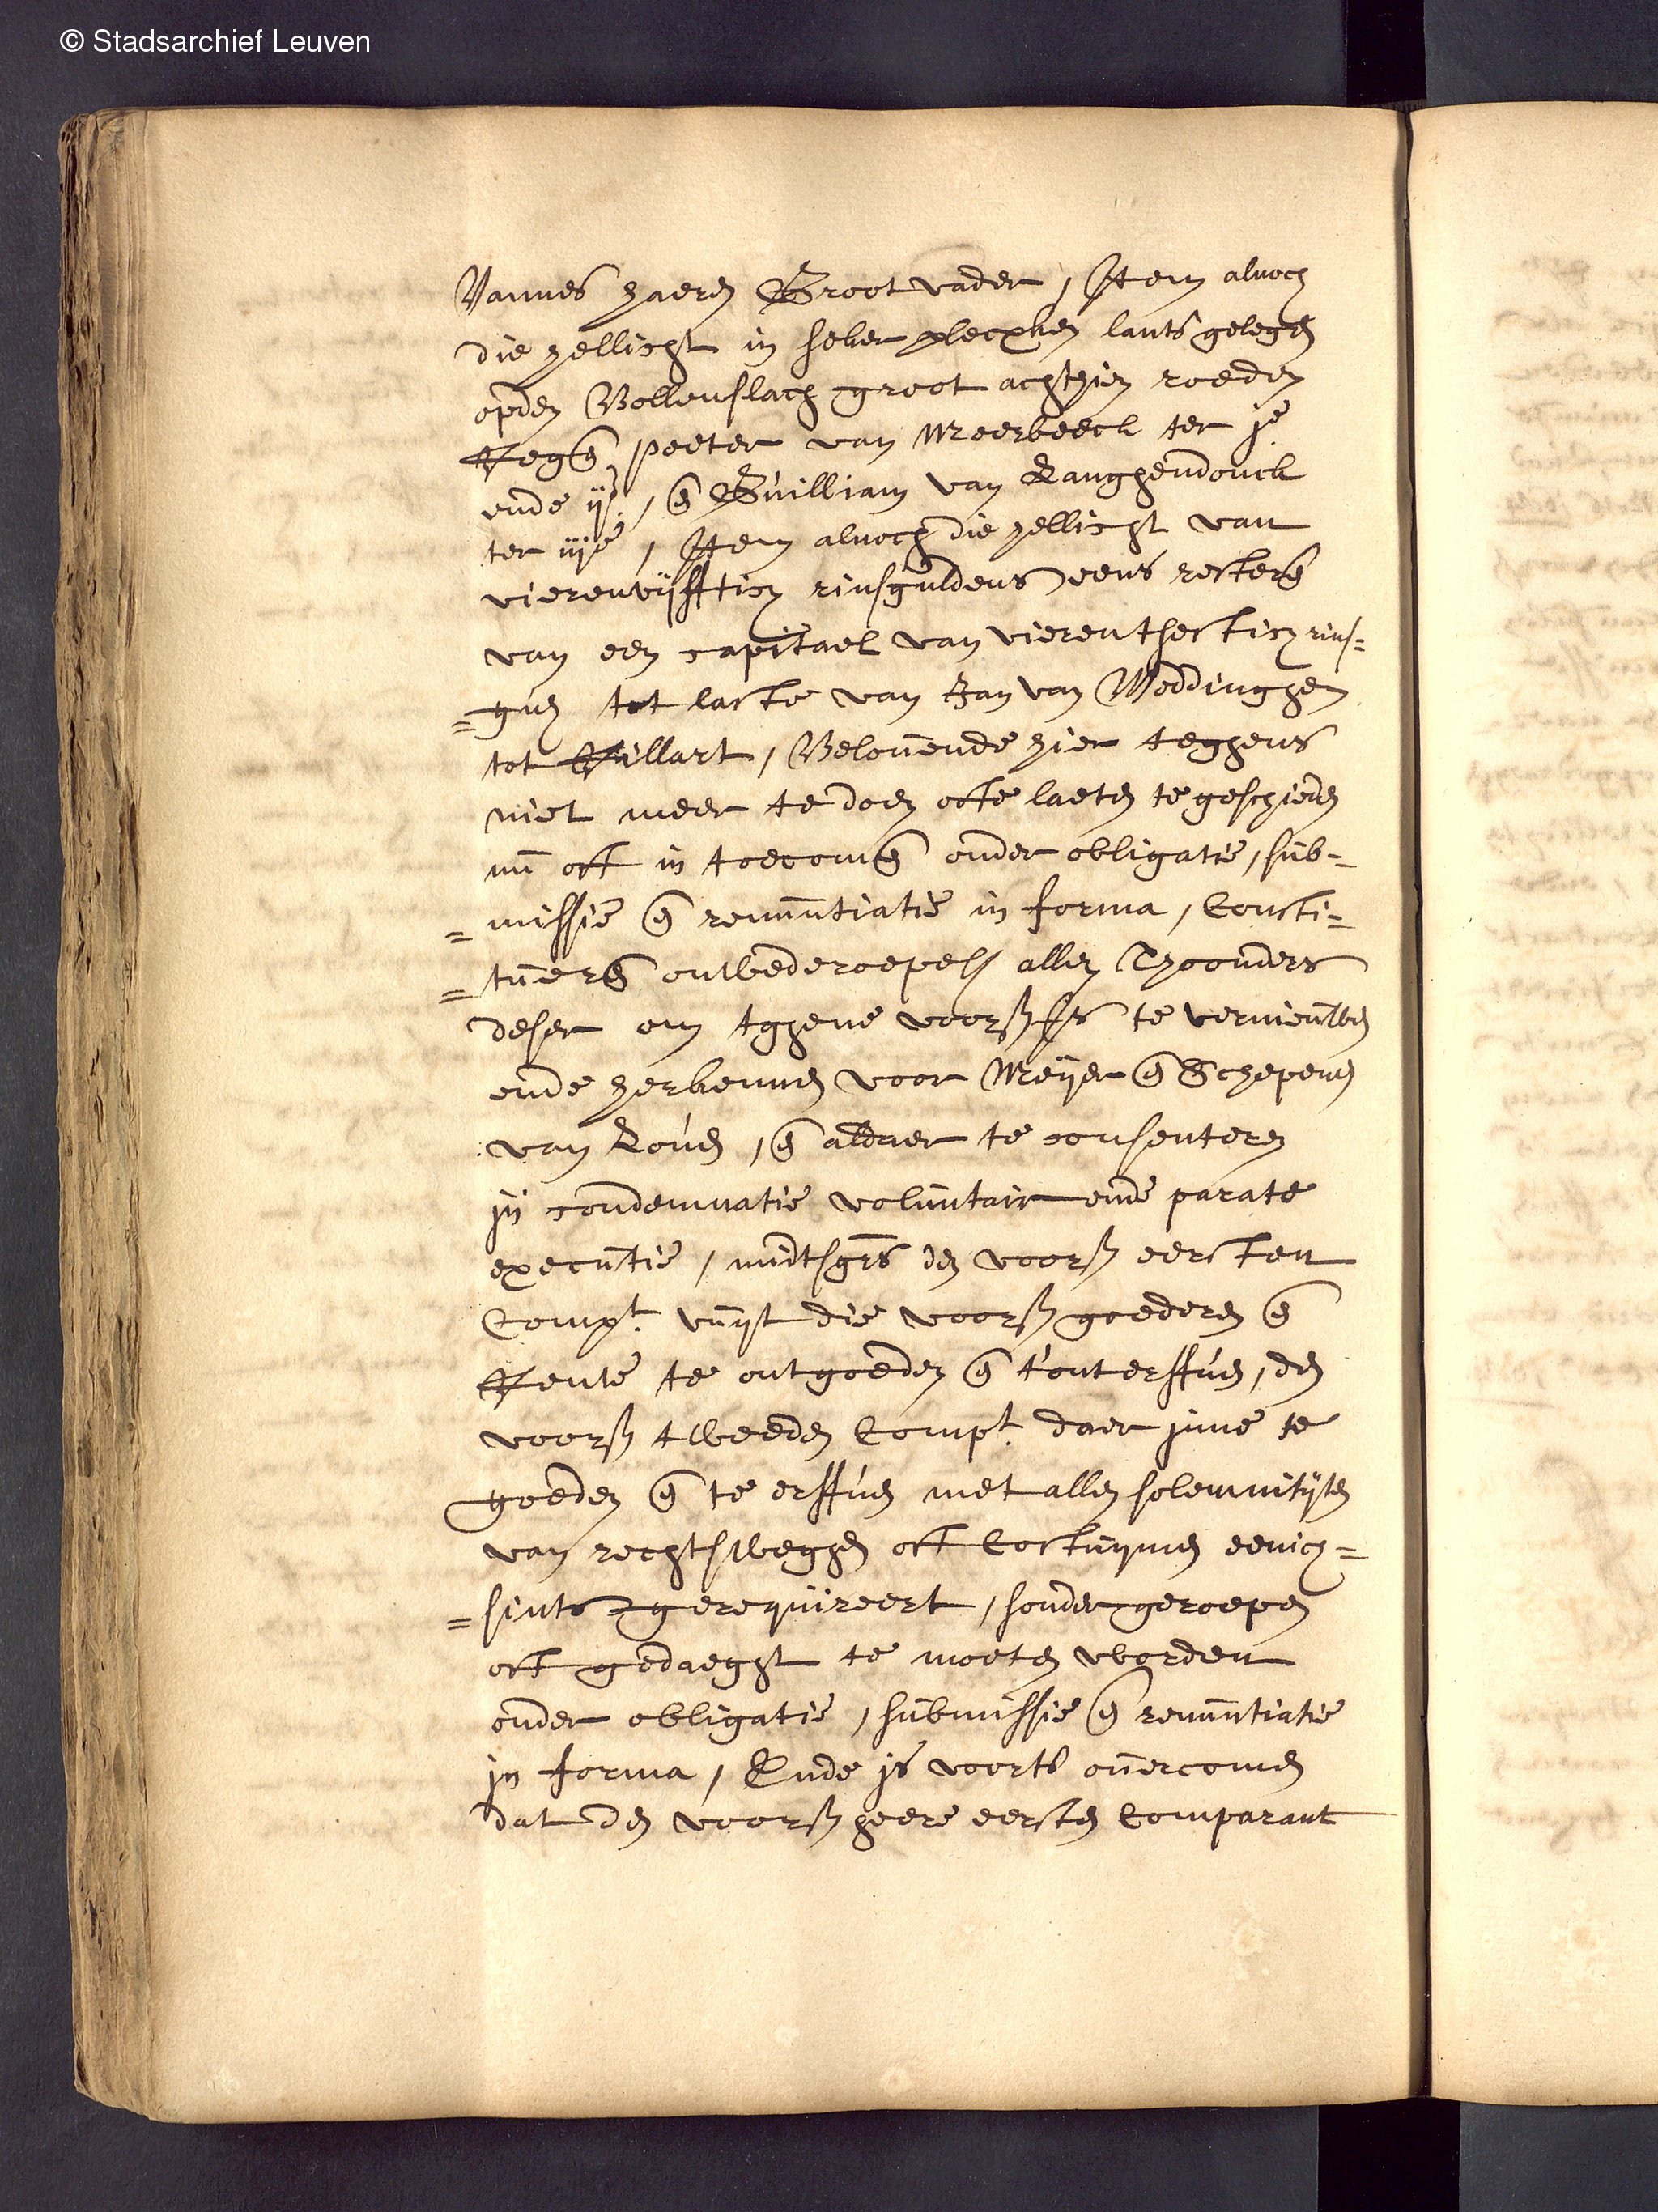 © Stadsarchief Leuven
Vannes haeren Grootvader, Item alnoch
die hellicht in seker plecxken lants gelegen
opden Bollenslach groot achthien roeden
Regen Peeter van Meerbeeck ter je
ende ije, en Guilliam van Langhendonck
ter iije, Item alnoch die hellicht van
vierenvijfftich rinsguldens eens resteren
van een capitael van vierentsestich rins=
=guls tot laste van Jan van Weddinghen
tot Rillart, Belouende hier teghens
niet meer te doen ofte laeten te geschieden
nu oft in toecomen onder obligatie, sub=
=missie en renuntiatie in forma, Consti=
=tueren onwederoepel allen Thoonders
deser om tghene voorss is te vernieuwen
ende herkennen voor Meyer en Schepenen
van Louen, en aldaer te consenteren
in condemnatie voluntair ende parate
executie, midtsgrs den voorss eersten
Compt. vuyt die voorss goederen en
Rente te ontgoeden en t'onterffuen, den
voorss tweeden Compt. daer inne te
goeden en te erffuen met allen solemnityten
van rechtsweghen oft Costuymen eenich=
=sints gerequireert, sonder geroepen
oft gedaeght te moeten worden
onder obligatie, submissie en renuntiatie
in forma, Ende is voorts ouercomen
dat den voorss heere eersten Comparant